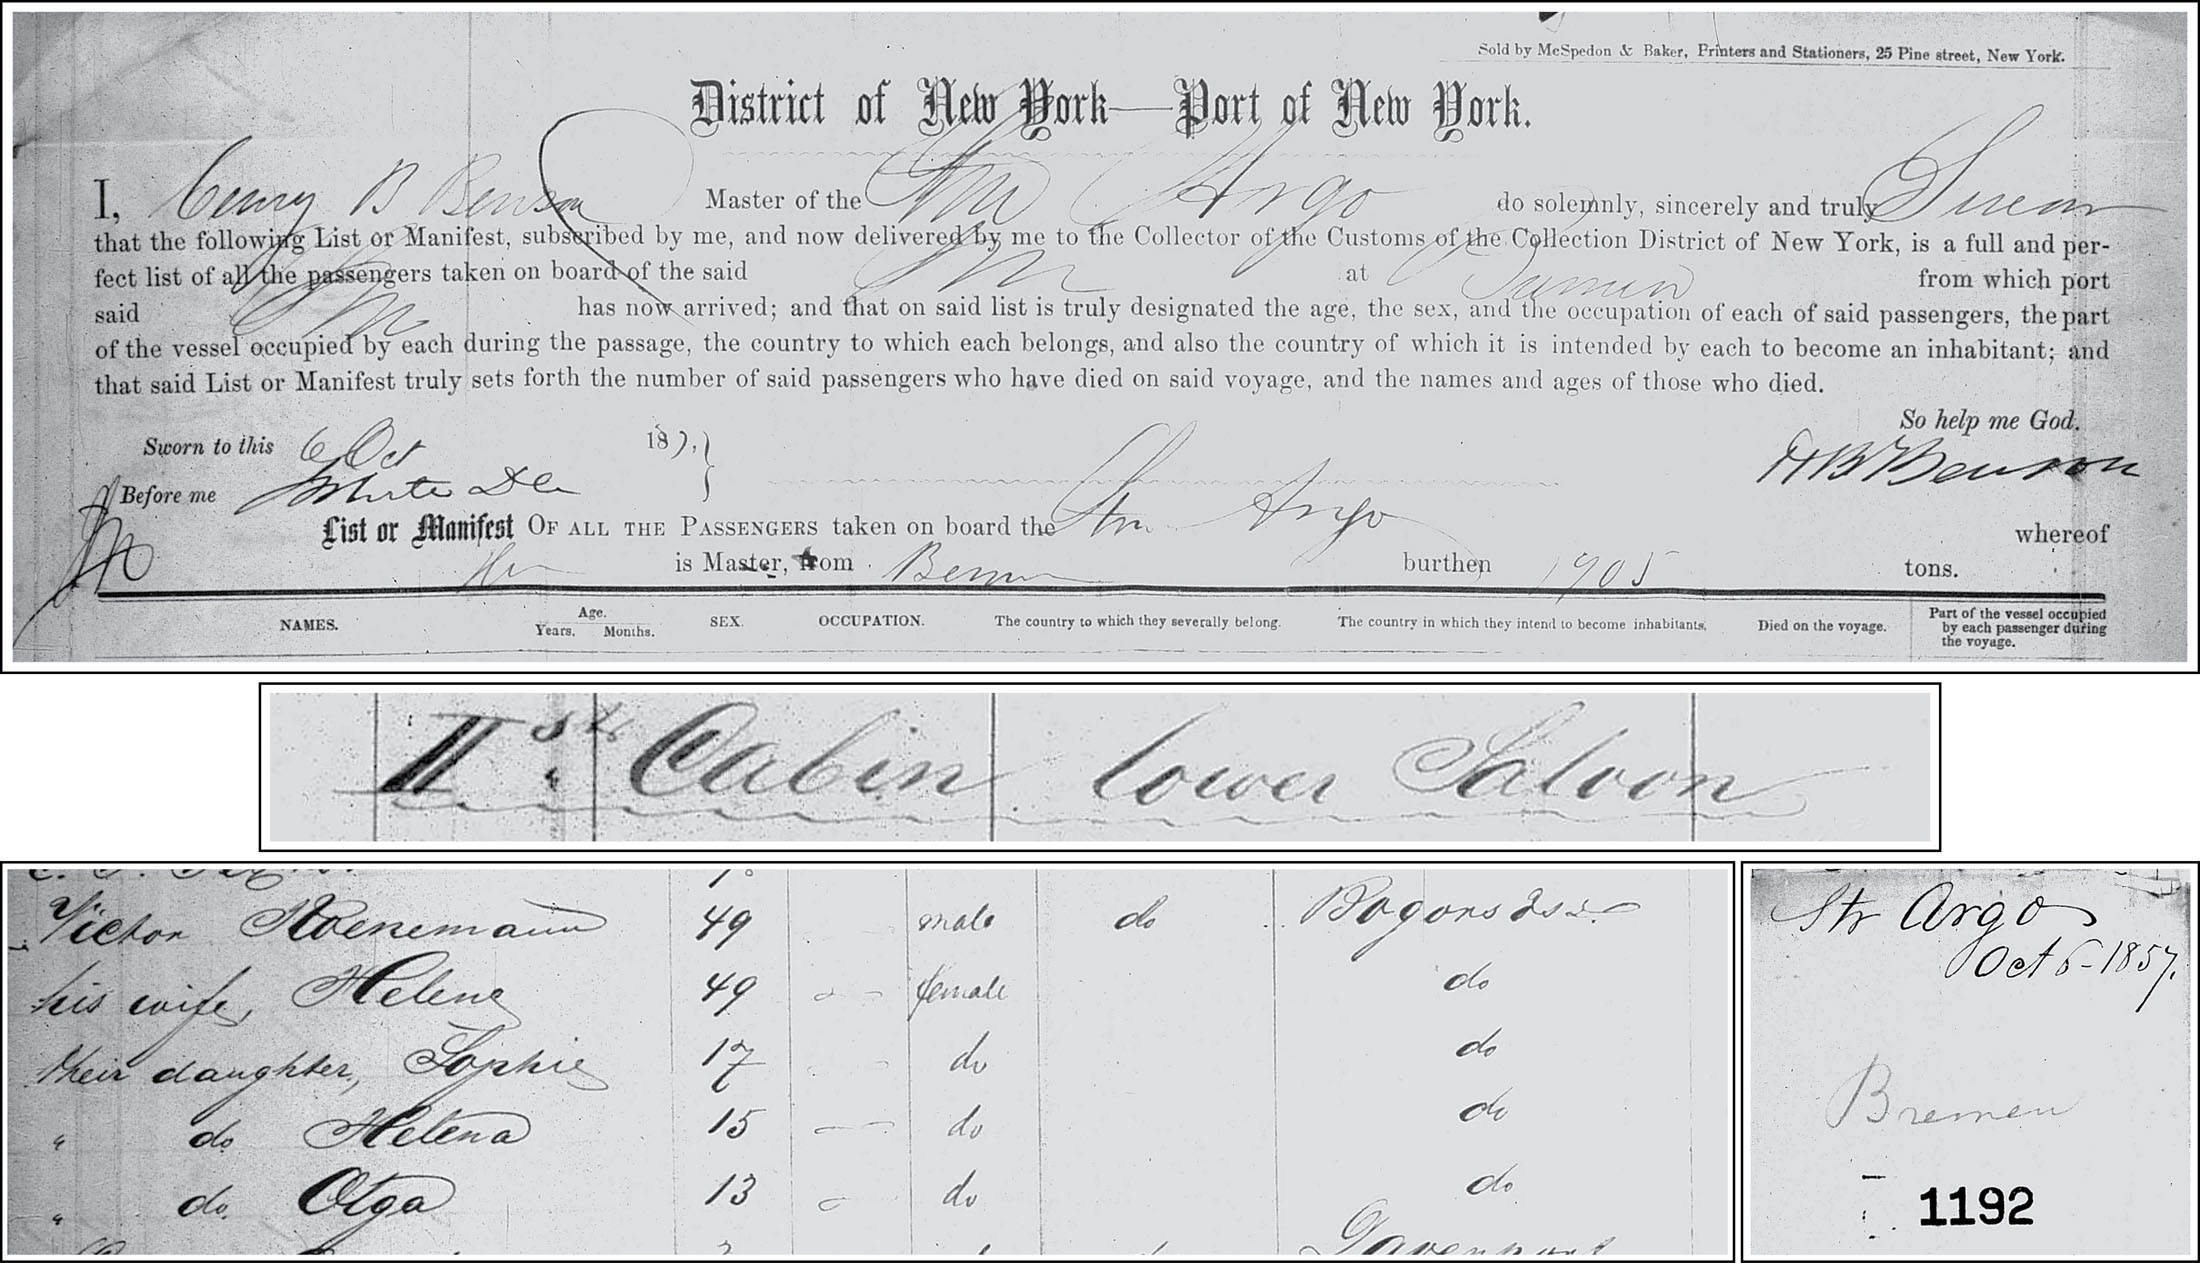 Sold by McSpedon & Baker, Printers and Stationers, 25 Pine street, New York.
District of New York—Port of New York.
I, Henry B Benson Master of the Stm Argo do solemnly, sincerely and truly Swear
that the following List or Manifest, subscribed by me, and now delivered by me to the Collector of the Customs of the Collection District of New York, is a full and per-
fect list of all the passengers taken on board of the said Stm at Bremen from which port
said Stm has now arrived; and that on said list is truly designated the age, the sex, and the occupation of each of said passengers, the part
of the vessel occupied by each during the passage, the country to which each belongs, and also the country of which it is intended by each to become an inhabitant; and
that said List or Manifest truly sets forth the number of said passengers who have died on said voyage, and the names and ages of those who died.
So help me God.
Sworn to this 6 Oct 187.
H B Benson
Before me
List or Manifest OF ALL THE PASSENGERS taken on board the Stm Argo whereof
is Master, from Bremen burthen 1905 tons.
NAMES. Age. Years. Months. SEX. OCCUPATION. The country to which they severally belong. The country in which they intend to become inhabitants. Died on the voyage. Part of the vessel occupied by each passenger during the voyage.
II Cabin lower Saloon
Victor 49 male do
his wife, Helene 49 female do
their daughter, Sophie 17 do do
" do Helena 15 do do
" do. Olga 13 do do
Davenport
Str Argo
Oct 6-1857.
Bremen
1192